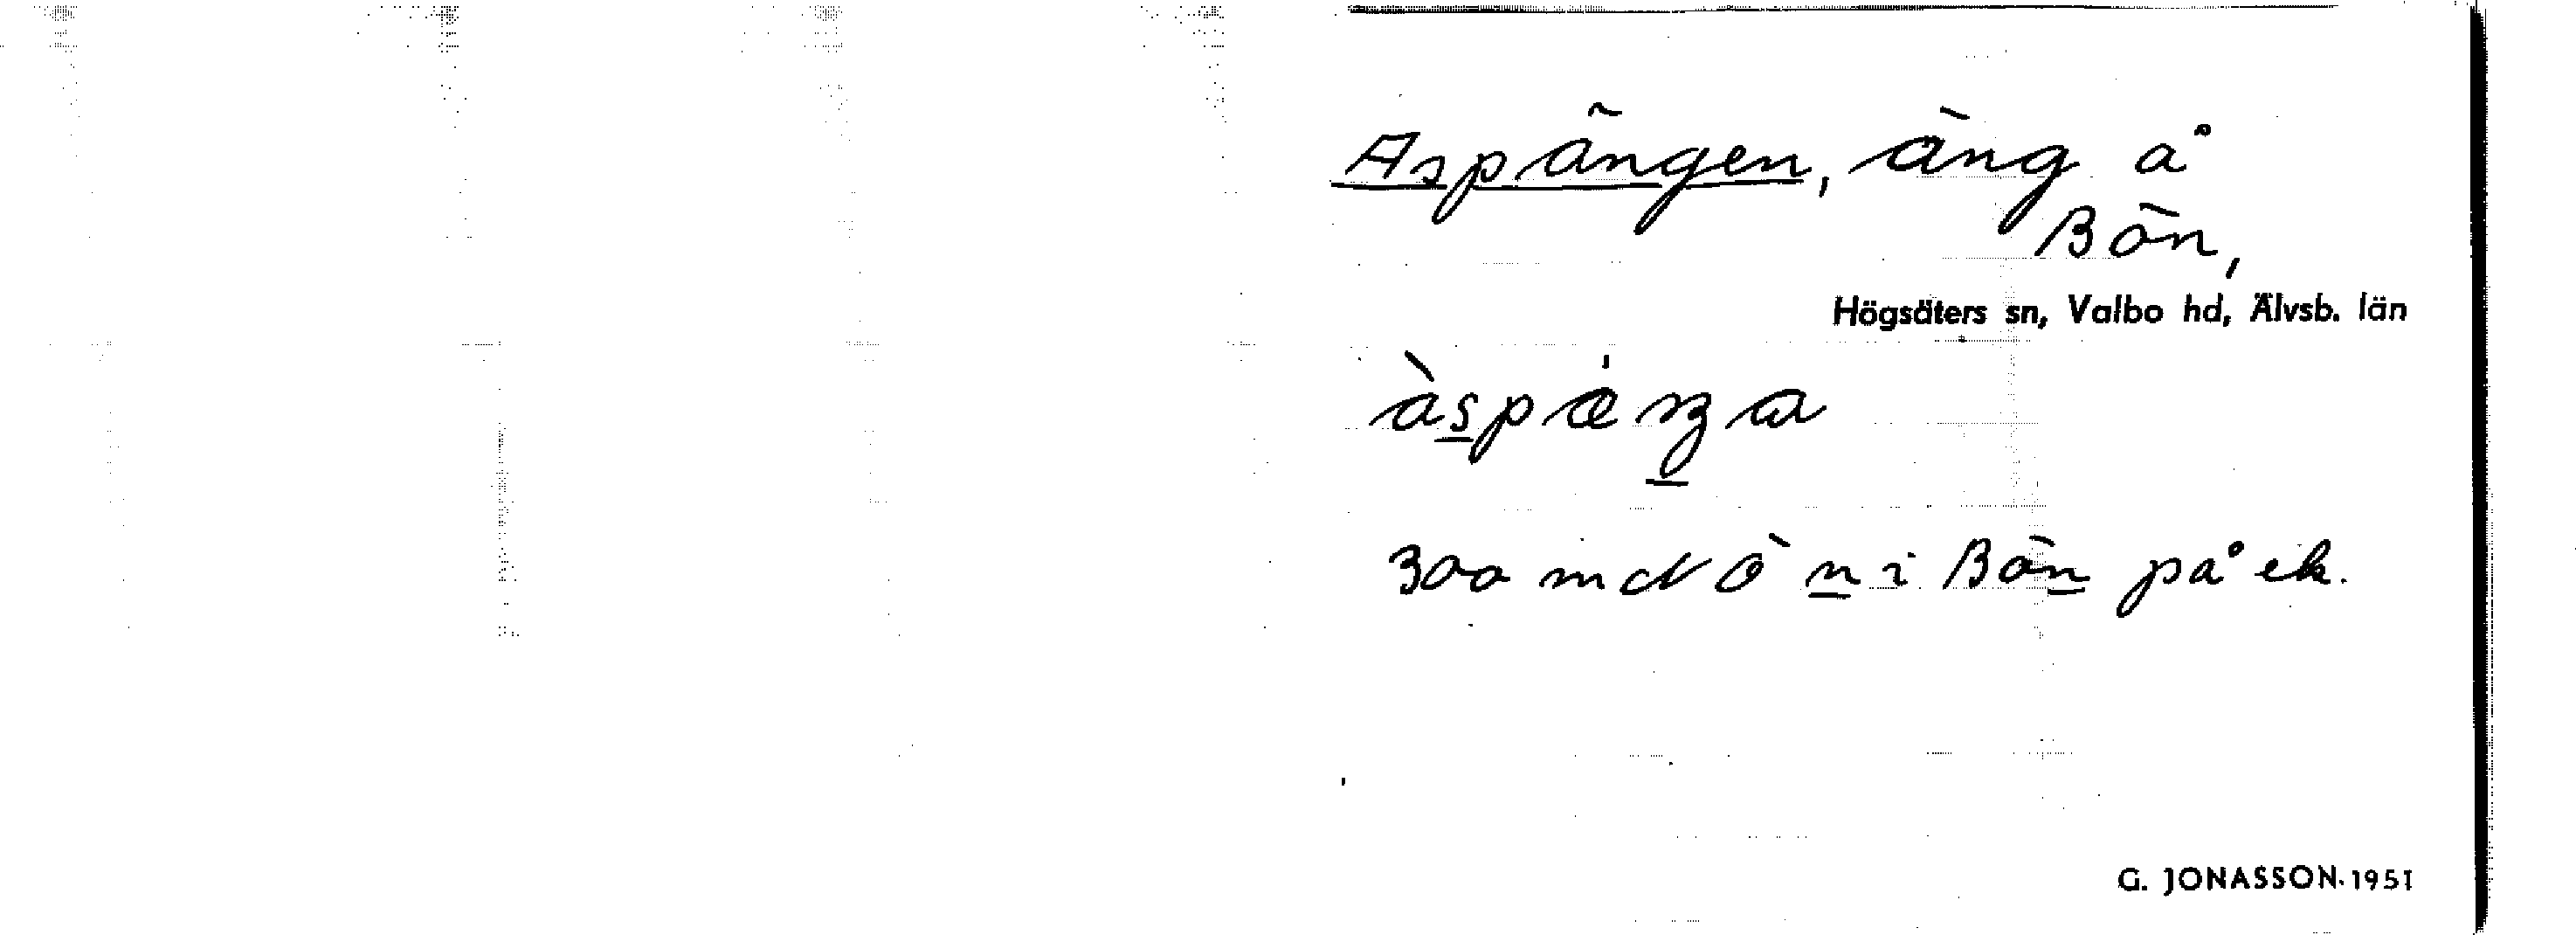 Aspängen, äng å
Bön,
Högsäters sn, Valbo hd, Älvsb. län
àspæ̀ŋa
300 m NÖ n i Bön på ek.
G. JONASSON. 1951